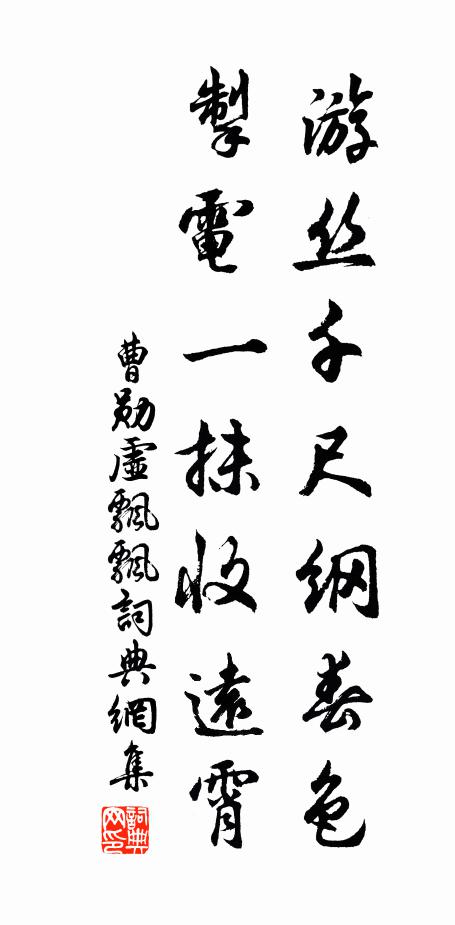 游丝千尺網春色
掣電一抹收遠霄
曹勛虛飄飄詞典網集
詞典网印